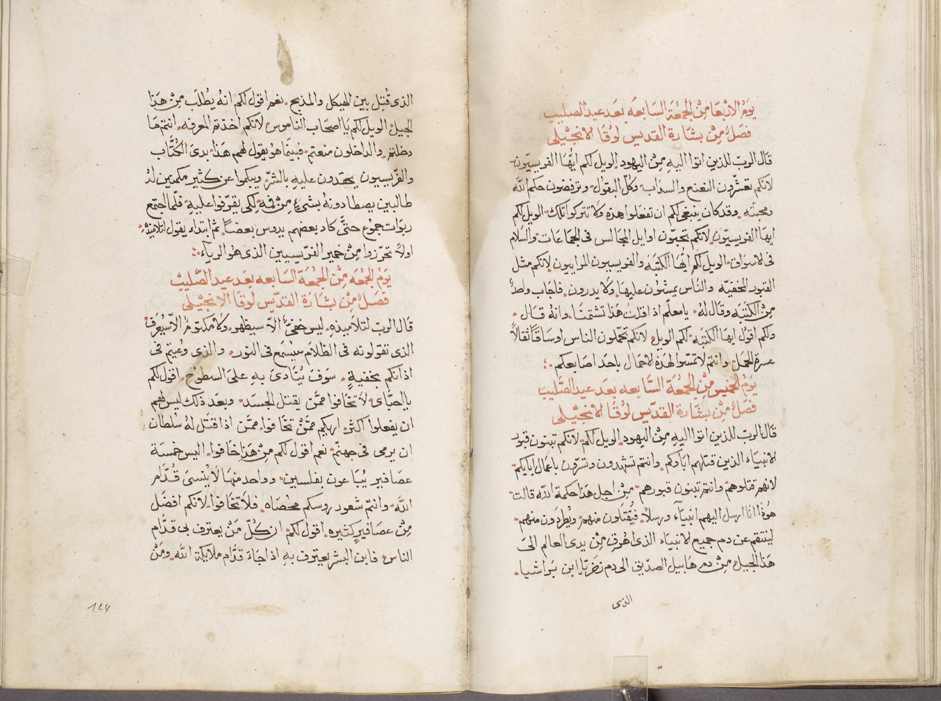 يوم الاربعا من الجمعة السابعه بعد عيد الصليب
فصل من بشارة القديس لوقا الانجيلى
قال الرب للذين اتوا اليه من اليهود الويل لكم ايها الفريسيون
لانكم تعشرون النعنع والسداب وكل البقول وترفضون حكم الله
ومحبته وقد كان ينبغى لكم ان تفعلوا هذه ولا تتركوا تلك الويل لكم
ايها الفريسيون لانكم تحبون اوايل المجالس فى الجماعات والسلام
فى الاسواق الويل لكم ايها الكتبه والفريسيون المرايون لانكم مثل
القبور المخفيه والناس يمشون عليها ولا يدرون فاجاب واحد
من الكتبه وقال له يا معلم اذ اقلت هذا تشتمنا وانه قال
ولكم اقول ايها الكتبه لكم الويل لانكم تحملون الناس اوساقا ثقالا
عسرة الحمل وانتم لا تمسوا هذه الاحمال باحد اصابعكم
يوم الخميس من الجمعة السابعه بعد عيد الصليب
فصل من بشارة القديس لوقا الانجيلى
قال الرب للذين اتوا اليه من اليهود الويل لكم لانكم تبنون قبور
الانبياء الذين قتلهم اباوكم وانتم تشهدون وتسرون باعمال ابايكم
لانهم قتلوهم وانتم تبنون قبورهم من اجل هذا حكمة الله قالت
هوذا انا ارسل اليهم انبياء ورسلا فيقتلون منهم ويطردون منهم
لينتقم عن دم جميع الانبياء الذى اهرق من بدى العالم الى
هذا الجيل من دم هابيل الصديق الى دم زخريا ابن بواشيا
الذى
الذى قتل بين الهيكل والمذبح نعم اقول لكم انه يطلب من هذا
الجيل الويل لكم يا اصحاب الناموس لانكم اخذتم المعرفه انتم ما
دخلتم والداخلون منعتم فبينما هو يقول لهم هذا بدى الكتاب
والفريسيون يحقدون عليه بالشر ويبكموا عن كثير مكمنين له
طالبين يصطادونه بشىء من فيه لكى يقرفوا عليه فلما اجتمع
ربوات جموع حتى كاد بعضهم يدوس بعضا ثم ابتداء يقول لتلاميذه
اولا تحرزوا من خمير الفريسيين الذى هو الرياء
يوم الجمعه من الجمعة السابعه بعد عيد الصليب
فصل من بشارة القديس لوقا الانجيلى
قال الرب لتلاميذه ليس خفى الا سيظهر ولا مكتوم الا سيعرف
الذى تقولونه فى الظلام سيسمع فى النور والذى وعيتم فى
اذانكم بخفية سوف ينادى به على السطوح اقول لكم
يا احباى لا تخافوا ممن يقتل الجسد وبعد ذلك ليس لهم
ان يفعلوا اكثر اريكم ممن تخافوا ممن اذا قتل له سلطان
ان يرمى فى جهنم نعم اقول لكم من هذا خافوا اليس خمسة
عصافير يباعون بفلسين وواحد منها لا ينسى قدام
الله وانتم شعور روسكم محصاه فلا تخافوا لانكم افضل
من عصافير كثيره اقول لكم ان كل من يعترف بى قدام
الناس فابن البشر يعترف به اذا جاء قدام ملايكة الله ومن
124